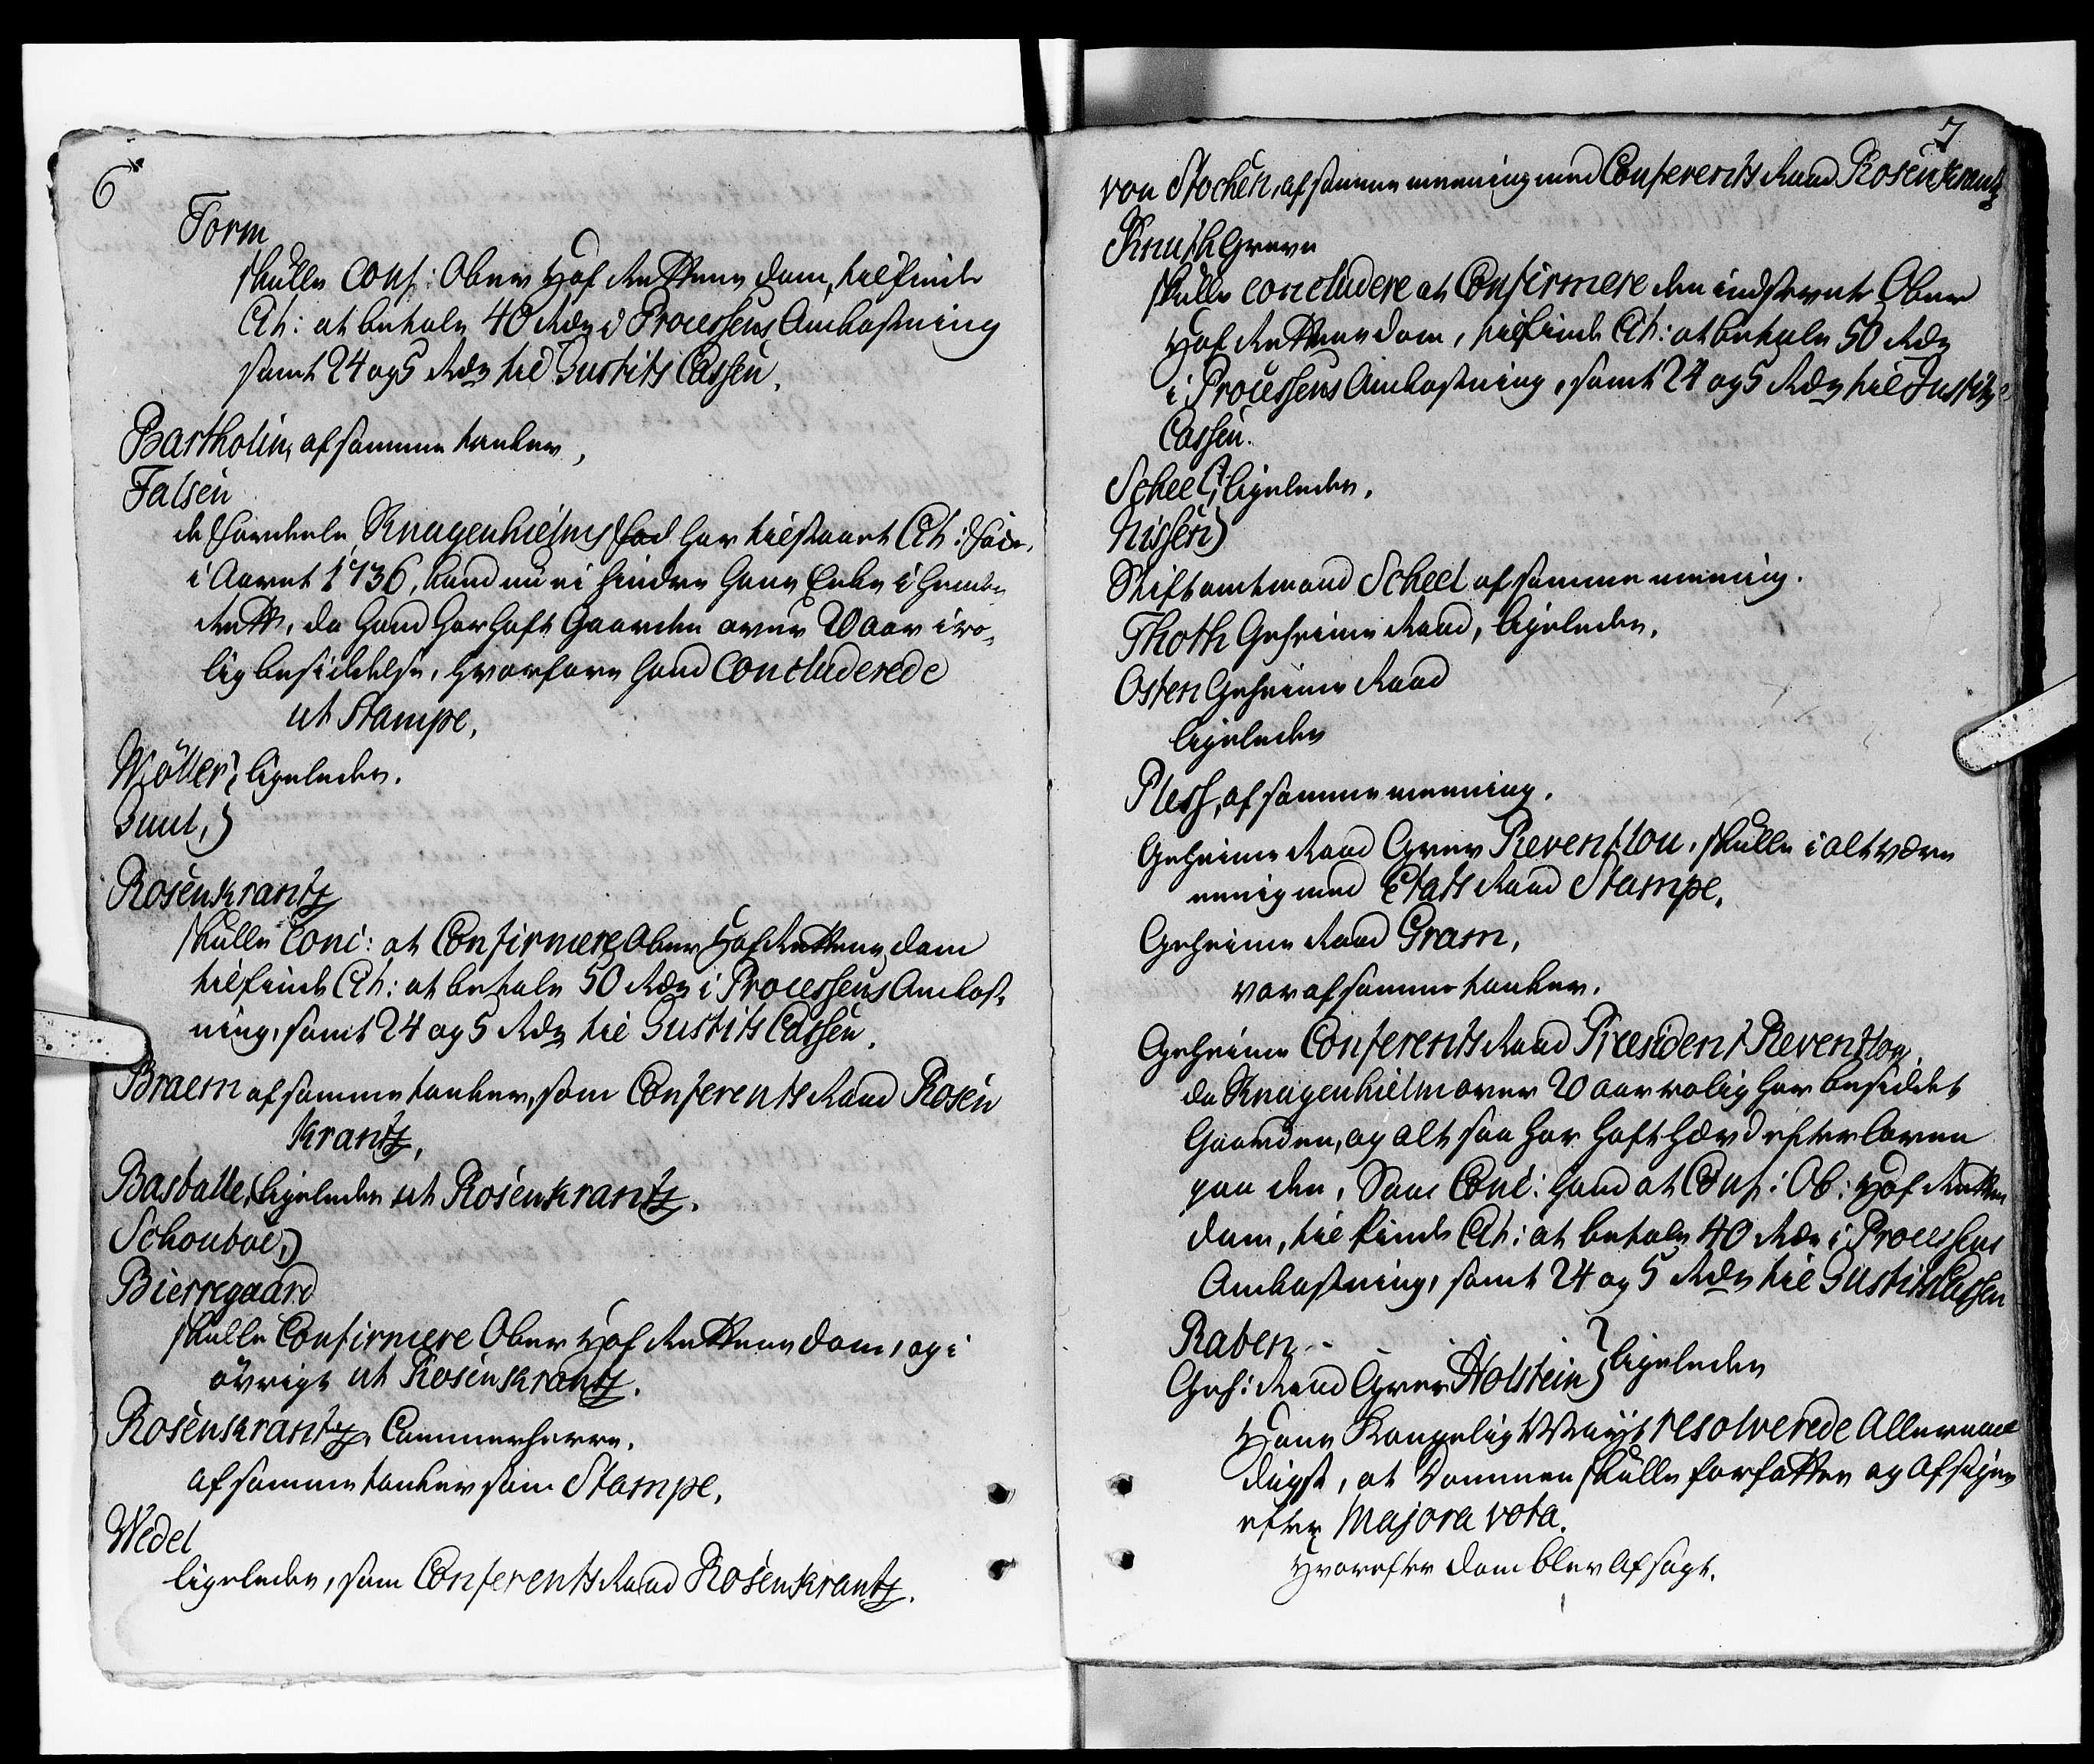 6
Form
skulle Conf: Ober Hof Rettens Dom, tilfinde
Cit: at betale 40 Rdr i Processens Omkostning
samt 24 og 5 Rdr til Justits Cassen.
Bartholin, af samme tanker,
Falsen
de Fordeele, Knagenhielms har tilstaaet Cit:
i Aaret 1736, kand nu ei hindre hans Enke i hendes
Rett, da hand har haft Gaarden over 20 aar i ro-
lig besiddelse, hvorfore hand Concluderede
ut Stampe.
Möller, ligeledes.
Juul,
Rosenkrantz
skulle Conc: at Confirmere Ober Hof Rettens Dom
tilfinde Cit: at betale 50 Rdr i Processens Omkost-
ning, samt 24 og 5 Rdr til Justits Cassen.
Braem af samme tanker, som Conferents Raad Rosen
krantz,
Basballe, ligeledes ut Rosenkrantz.
Schouboe,
Bierregaard
skulle Confirmere Ober Hof Rettens Dom, og i
övrigt ut Rosenkrantz.
Rosenkrantz, Cammerherre,
af samme tanker som Stampe.
Wedel
ligeledes, som Conferents Raad Rosenkrantz.
7
von Stocken, af samme meening med Conferents Raad Rosenkrantz
Knuth Greve
skulle concludere at Confirmere den indstevnte Ober
Hof Rettens Dom, tilfinde Cit: at betale 50 Rdr
i Processens Omkostning, samt 24 og 5 Rdr til Justitz
Cassen.
Scheel, ligeledes.
Nissen
Stiftamtmand Scheel af samme meening.
Thott Geheime Raad, ligeledes.
Osten Geheime Raad
ligeledes
Pless, af samme meening.
Geheime Raad Grev Reventlou, skulle i alt være
eenig med Etats Raad Stampe.
Geheime Raad Gram,
var af samme tanker.
Geheime Conferents Raad Præsident Reventlou.
da Knagenhielm over 20 aar rolig har besiddet
Gaarden, og altsaa har haft hævd efter loven
paa den, Saa Conc: hand at Conf: Ob: Hof Rettens
Dom, tilfinde Cit: at betale 40 Rdr i Processens
Omkostning, samt 24 og 5 Rdr til Justits Cassen
Raben
Geh: Raad Grev Holstein ligeledes
Hans Kongelig Mayt resolverede Allernaa
digst, at Dommen skulle forfattes og afsiges
efter Majora vota.
Hvorefter Dom blev afsagt.